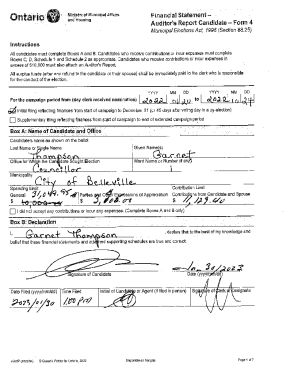 Ontario
Ministry of Municipal Affairs
and Housing
Financial Statement –
Auditor's Report Candidate – Form 4
Municipal Elections Act, 1996 (Section 88.25)
Instructions
All candidates must complete Boxes A and B. Candidates who receive contributions or incur expenses must complete
Boxes C, D, Schedule 1 and Schedule 2 as appropriate. Candidates who receive contributions or incur expenses in
excess of $10,000 must also attach an Auditor's Report.
All surplus funds (after any refund to the candidate or their spouse) shall be immediately paid to the clerk who is responsible
for the conduct of the election.
YYYY MM DD YYYY MM DD
For the campaign period from (day clerk received nomination) 2022 to 2022 10 24
Initial filing reflecting finances from start of campaign to December 31 (or 45 days after voting day in a by-election)
Supplementary filing reflecting finances from start of campaign to end of extended campaign period
Box A: Name of Candidate and Office
Candidate's name as shown on the ballot
Last Name or Single Name Given Name(s)
Thompson Garnet
Office for Which the Candidate Sought Election Ward Name or Number (if any)
Councillor 1
Municipality
City of Belleville
Spending Limit Contribution Limit
General Parties and Other Expressions of Appreciation Contributions from Candidate and Spouse
I did not accept any contributions or incur any expenses. (Complete Boxes A and B only)
Box B: Declaration
I, Garnet Thompson, declare that to the best of my knowledge and
belief that these financial statements and attached supporting schedules are true and correct.
Signature of Candidate Date (yyyy/mm/dd)
Date Filed (yyyy/mm/dd) Time Filed Initial of Candidate or Agent (if filed in person) Signature of Clerk or Designate
2023/01/30 1:00 pm
Disponible en français
Page 1 of